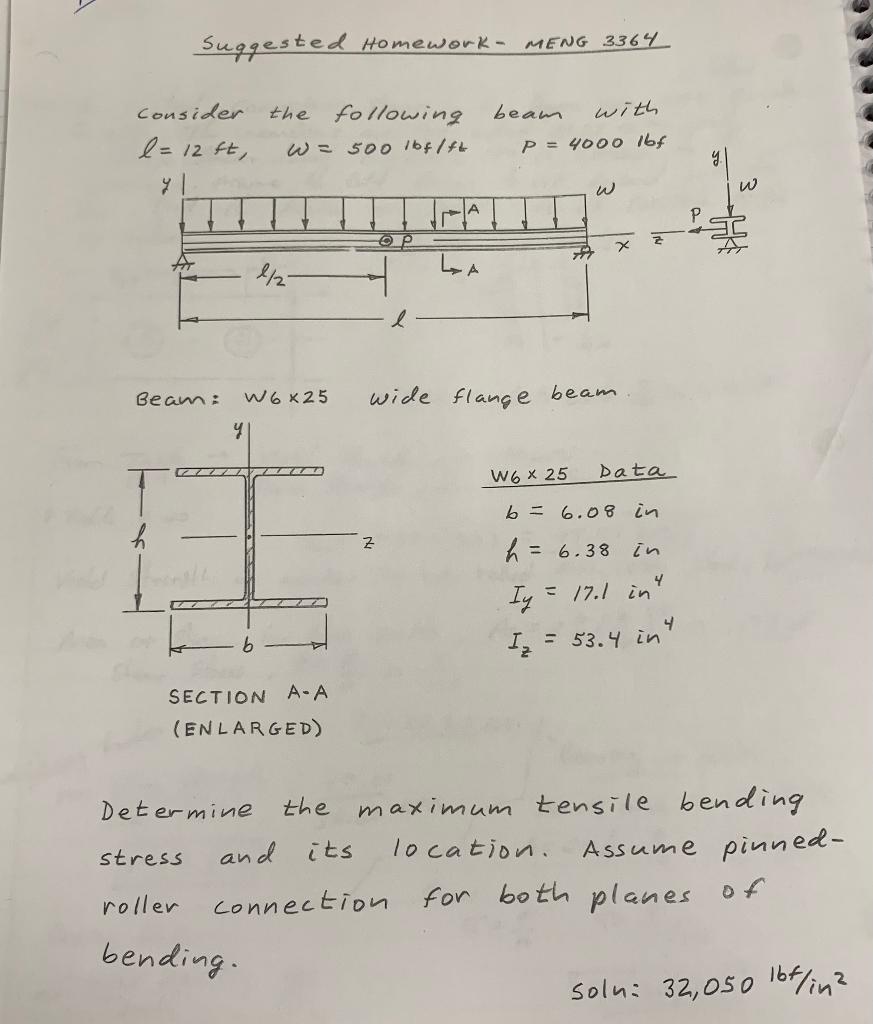 Suggested Homework - MENG 3364
Consider the following beam with
l = 12 ft, w = 500 lbf/ft P = 4000 lbf
y
w
A
P
x
l/2
A
l
y
w
P
z
Beam: W6x25 wide flange beam
y
h
z
b
SECTION A-A
(ENLARGED)
W6 x 25 Data
b = 6.08 in
h = 6.38 in
Iy = 17.1 in⁴
Iz = 53.4 in⁴
Determine the maximum tensile bending
stress and its location. Assume pinned-
roller connection for both planes of
bending.
Soln: 32,050 lbf/in²